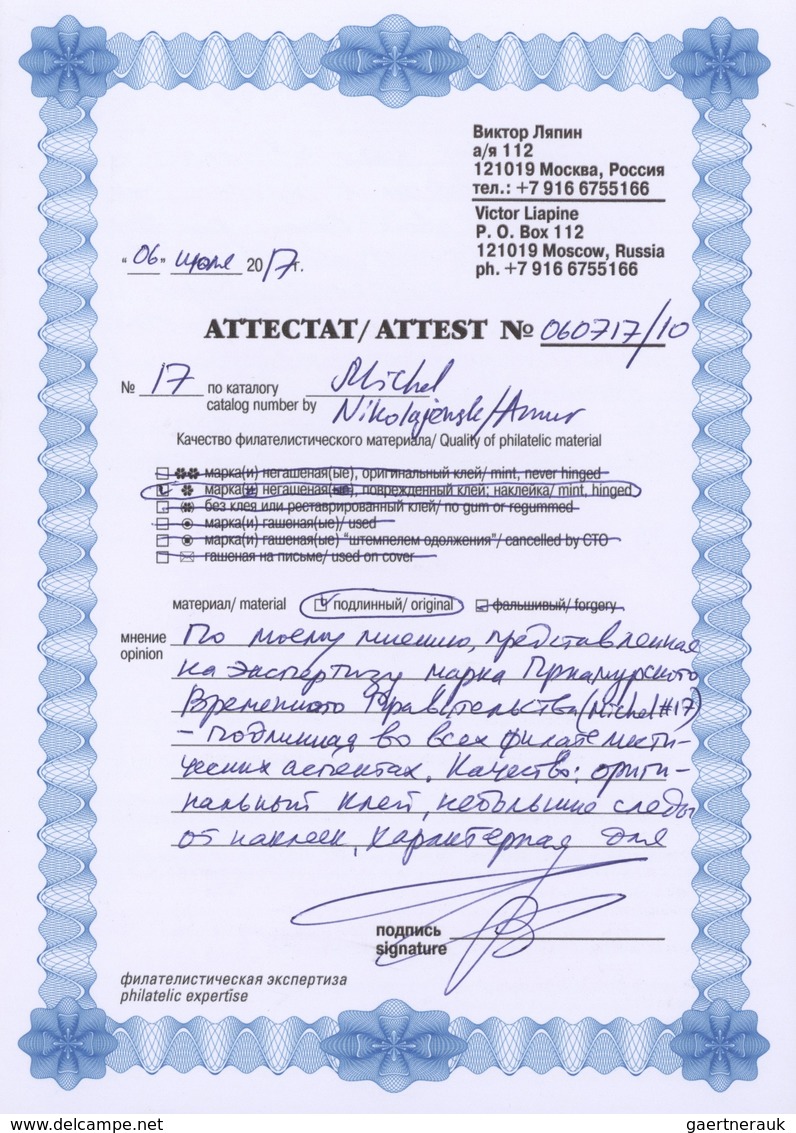 Виктор Ляпин
а/я 112
121019 Москва, Россия
тел.: +7 916 6755166
Victor Liapine
P. O. Box 112
121019 Moscow, Russia
ph. +7 916 6755166
"06" июля 2017г.
АТТЕСТАТ/ ATTEST № 060717/10
№ 17 по каталогу Michel
catalog number by Nikolajewsk/Amur
Качество филателистического материала/ Quality of philatelic material
марка(и) негашеная(ые), оригинальный клей/ mint, never hinged
марка(и) негашеная(ые), поврежденный клей; наклейка/ mint, hinged
без клея или реставрированный клей/ no gum or regummed
марка(и) гашеная(ые)/ used
марка(и) гашеная(ые) "штемпелем одолжения"/ cancelled by CTO
гашеная на письме/ used on cover
материал/ material подлинный/ original фальшивый/ forgery
мнение По моему мнению, представленная
opinion на экспертизу марка Приамурского
Временного Правительства (Michel #17)
- подлинная во всех филателисти-
ческих аспектах. Качество: ориги-
нальный клей, небольшие следы
от наклеек, характерная для
подпись
signature
филателистическая экспертиза
philatelic expertise
gaertnerauk